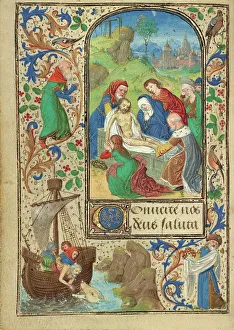 Convertte nos
deus saluta